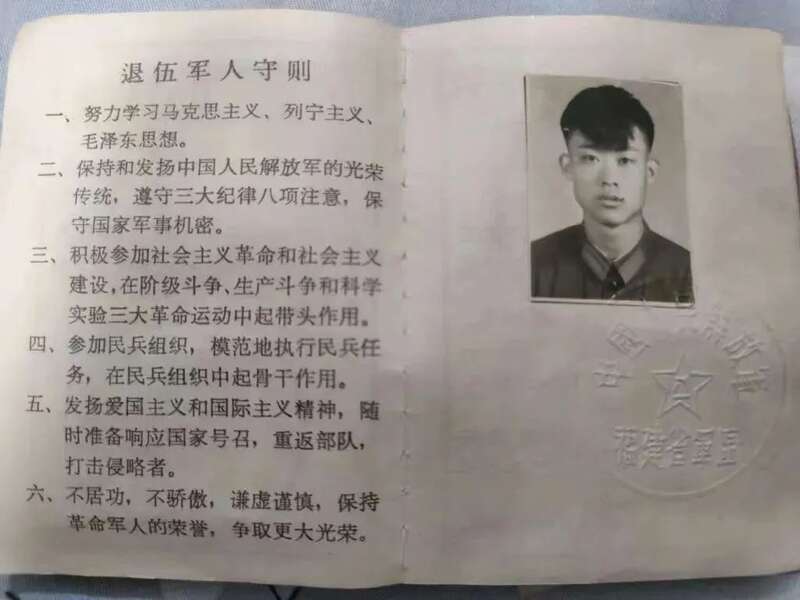 退伍军人守则
一、努力学习马克思主义、列宁主义、
毛泽东思想。
二、保持和发扬中国人民解放军的光荣
传统，遵守三大纪律八项注意，保
守国家军事机密。
三、积极参加社会主义革命和社会主义
建设，在阶级斗争、生产斗争和科学
实验三大革命运动中起带头作用。
四、参加民兵组织，模范地执行民兵任
务，在民兵组织中起骨干作用。
五、发扬爱国主义和国际主义精神，随
时准备响应国家号召，重返部队，
打击侵略者。
六、不居功，不骄傲，谦虚谨慎，保持
革命军人的荣誉，争取更大光荣。
福建省军区